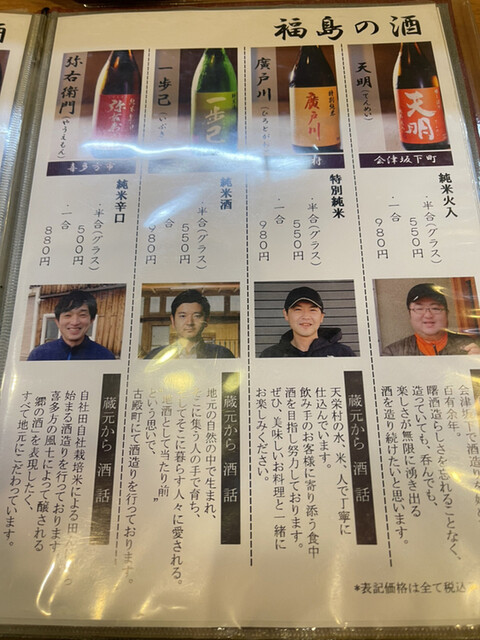 福島の酒
天明(てんめい)
天明
会津坂下町
純米火入
・半合(グラス)
550円
・一合
980円
会津坂下で酒造りを始め
百有余年。
曙酒造らしさを忘れることなく、
造っていても、呑んでも、
楽しさが無限に湧き出る
酒を造り続けたいと思います。
廣戸川(ひろとがわ)
特別純米
廣戸川
村
特別純米
・半合(グラス)
550円
・一合
980円
蔵元から 酒 話
天栄村の水、米、人で丁寧に
仕込んでいます。
飲み手のお客様に寄り添う食中
酒を目指し努力しております。
ぜひ、美味しいお料理と一緒に
お楽しみください。
一歩己
一歩己
純米酒
・半合(グラス)
550円
・一合
980円
蔵元から 酒 話
地元の自然の中で生まれ、
に集う人の手で育ち、
してそこに暮らす人々に愛される。
地酒として当たり前"
という思いで、
古殿町にて酒造りを行っております。
弥右衛門(やうえもん)
弥右衛門
喜多方市
純米辛口
・半合(グラス)
500円
・一合
880円
蔵元から 酒 話
自社田自社栽培米による田
始まる酒造りを行っております
喜多方の風土によって醸される
郷の酒"を表現したく、
すべて地元にこだわっています。
*表記価格は全て税込